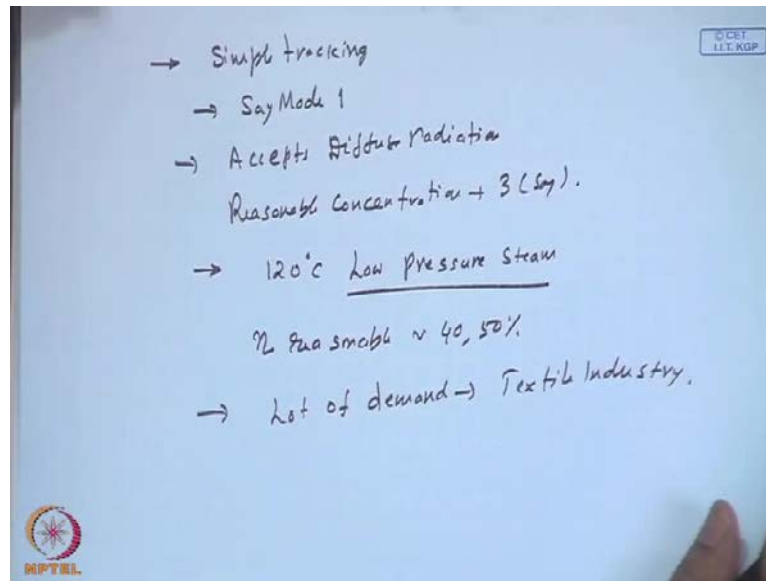 → Simple tracking
© CET
I.I.T. KGP
→ Say Mode 1
→ Accepts Diffuse radiation
Reasonable Concentration → 3 (Say).
→ 120°C Low Pressure Steam
η reasonable ~ 40, 50%
→ Lot of demand → Textile Industry.
NPTEL